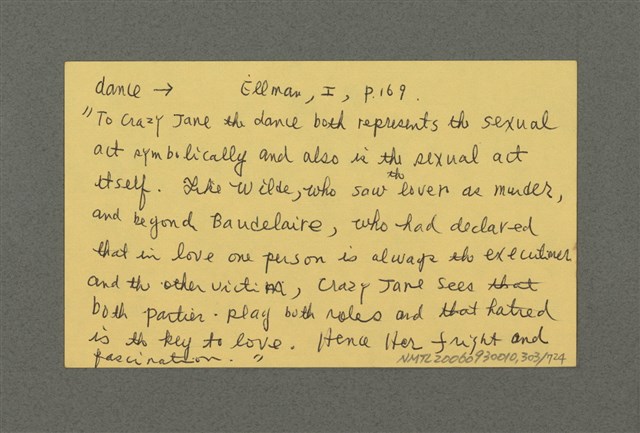 dance → Ellman, I, p.169.
"To Crazy Jane the dance both represents the sexual
act symbolically and also is the sexual act
itself. Like Wilde, who saw th lover as murder,
and beyond Baudelaire, who had declared
that in love one person is always the executioner
and th other victim, Crazy Jane sees that
both parties play both roles and that hatred
is th key to love. Hence Her fright and
fascination."
NMTL20060930010,303/724